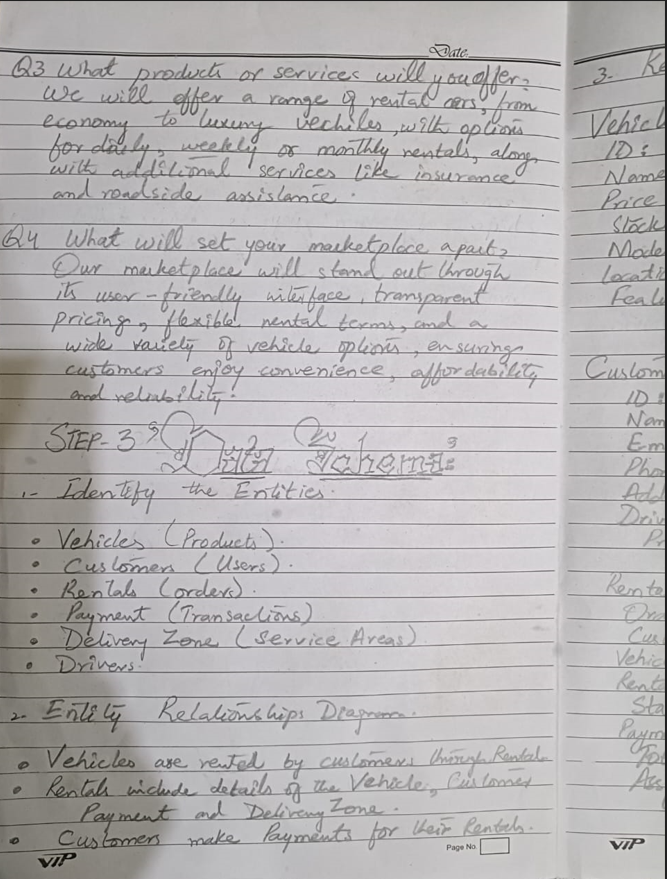 Date.
Q3 What products or services will you offer?
We will offer a range of rental cars, from
economy to luxury vechiles, with options
for daily, weekly or monthly rentals, along
with additional services like insurance
and roadside assistance.
Q4 What will set your marketplace apart?
Our marketplace will stand out through
its user-friendly interface, transparent
pricing, flexible rental terms, and a
wide variety of vehicle options, ensuring
customers enjoy convenience, affordability
and reliability.
STEP-3 : Data Schema:
1- Identify the Entities.
• Vehicles (Products).
• Customers (Users).
• Rentals (orders).
• Payment (Transactions)
• Delivery Zone (Service Areas).
• Drivers.
2- Entity Relationships Diagram.
• Vehicles are rented by customers through Rental.
• Rentals include details of the Vehicle, Customer
Payment and Delivery Zone.
• Customers make Payments for their Rentals.
VIP
Page No.
3-
Vehicl
ID:
Name
Price
Stock
Mode
Locati
Feat
Custom
ID:
Nam
Em
Pho
Add
Driv
Renta
Cus
Vehic
Rent
Sta
Paym
VIP